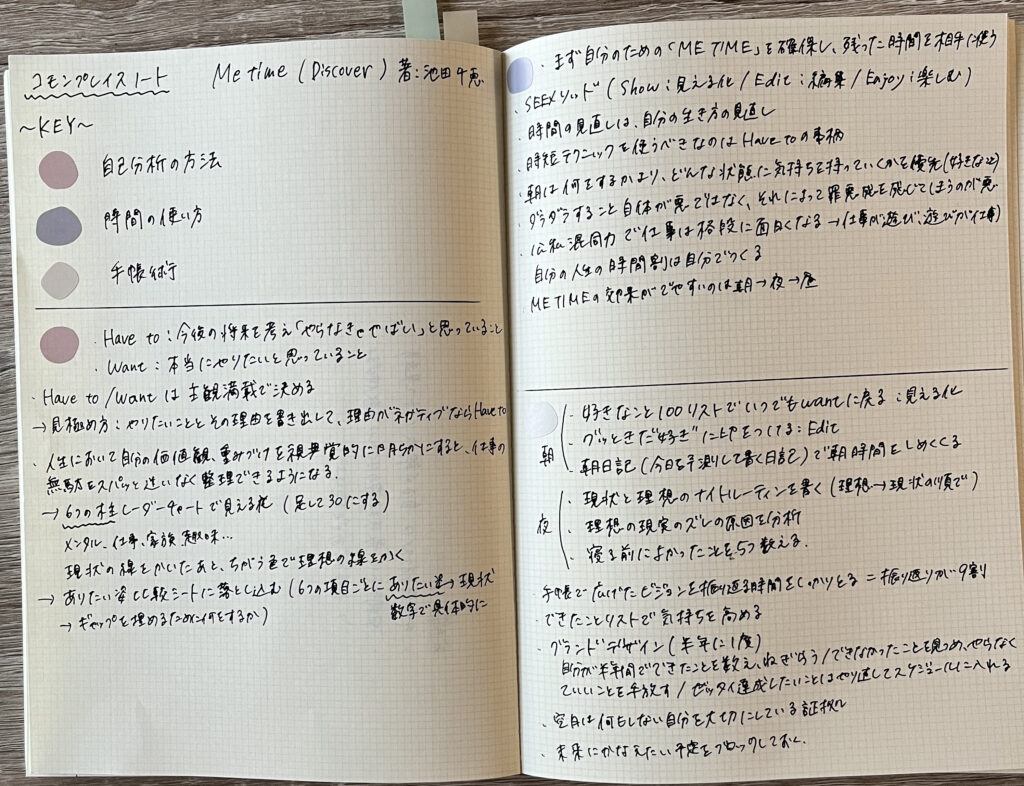 コモンプレイスノート Me time (Discover) 著:池田千恵
~KEY~
自己分析の方法
時間の使い方
手帳術
・Have to:今後の将来を考え「やらなきゃやばい」と思っていること
・Want:本当にやりたいと思っていること
・Have to/Want は主観満載で決める
→見極め方:やりたいこととその理由を書き出して、理由がネガティブならHave to
・人生において自分の価値観、重みづけを視覚的に明らかにすると、仕事の
無駄をスパッと迷いなく整理できるようになる。
→6つの柱レーダーチャートで見える化(足して30にする)
メンタル、仕事、家族、趣味…
現状の線をかいたあと、ちがう色で理想の線をかく
→ありたい姿比較シートに落とし込む(6つの項目ごとにありたい姿→現状
→ギャップを埋めるために何をするか) 数字で具体的に
・まず自分のための「ME TIME」を確保し、残った時間を相手に使う
・SEEメソッド(Show:見える化/Edit:編集/Enjoy:楽しむ)
・時間の見直しは、自分の生き方の見直し
・時短テクニックを使うべきなのはHave toの事柄
・朝は何をするかより、どんな状態に気持ちを持っていくかを優先(好きなこと)
・ダラダラすること自体が悪ではなく、それによって罪悪感を感じてしまうのが悪
・公私混同力で仕事は格段に面白くなる→仕事が遊び、遊びが仕事)
・自分の人生の時間割は自分でつくる
・ME TIMEの効果がでやすいのは朝→夜→昼
朝
・好きなこと100リストでいつでもwantに戻る:見える化
・グッときた"好き"に印をつける:Edit
・朝日記(今日を予測して書く日記)で朝時間をしめくくる
夜
・現状と理想のナイトルーティンを書く(理想→現状の順で)
・理想の現実のズレの原因を分析
・寝る前によかったことを5つ数える。
・手帳で広げたビジョンを振り返る時間をしっかりとる=振り返りが9割
・できたことリストで気持ちを高める
・グランドデザイン(半年に1度)
自分が半年間でできたことを数え、ねぎらう/できなかったことを見つめ、やらなく
ていいことを手放す/ゼッタイ達成したいことはやり直してスケジュールに入れる
・空白は何もしない自分を大切にしている証拠
・未来にかなえたい予定をブロックしておく。